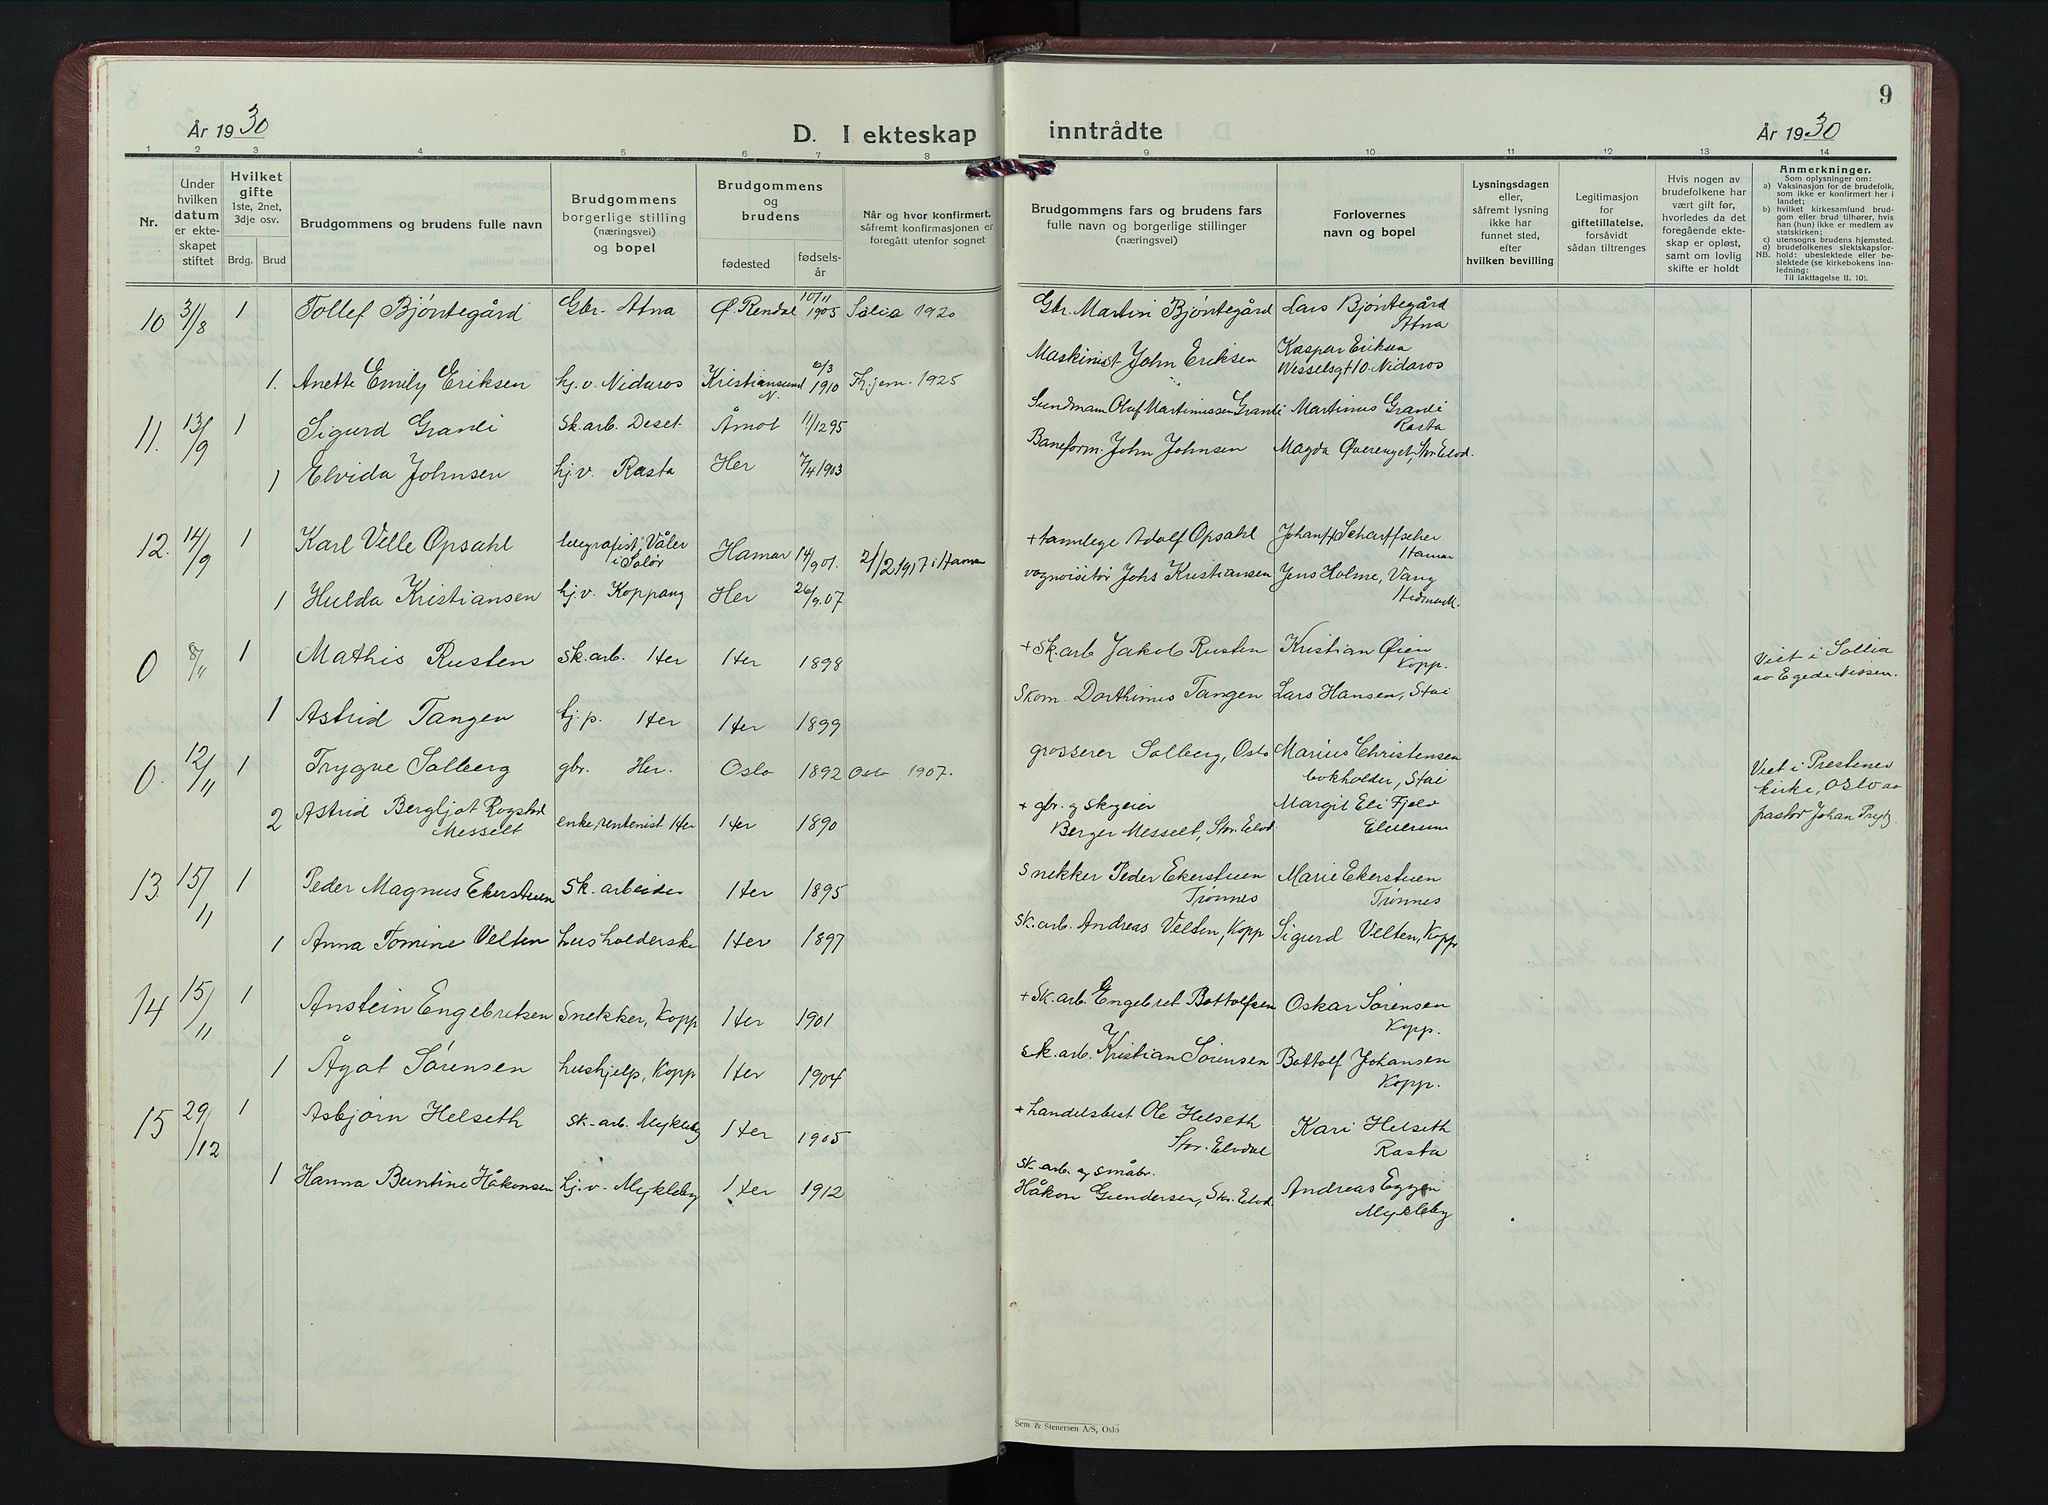 År 1930
D. I ekteskap
1 2 3 4 5 6 7 8
Nr.
Under hvilken datum er ekteskapet stiftet
Hvilket gifte 1ste, 2net, 3dje osv.
Brdg. Brud
Brudgommens og brudens fulle navn
Brudgommens borgerlige stilling (næringsvei) og bopel
Brudgommens og brudens
fødested fødselsår
Når og hvor konfirmert, såfremt konfirmasjonen er foregått utenfor sognet
10 31/8 1 Tollef Bjøntegård Gbr. Atna Ø. Rendal 10/11 1905 1920
1. Anette Emily Eriksen hj.v. Nidaros Kristiansund N. 1910 Thjem. 1925
11. 13/9 1 Sigurd Grandi Sk.arb. Deset Åmot 11/12 95
1 Elvida Johnsen hj.v. Rasta Her 7/4 1903
12. 14/9 1 Karl Velle Opsahl telegrafist, Våler i Solør Hamar 14/9 01. 1917 i Hamar
1 Hulda Kristiansen hj.v. Koppang Her 26/9.07
0 8/11 1 Mathis Rusten Sk.arb. Her Her 1898
1 Astrid Tangen tj.p. Her Her 1899
0. 12/11 1 Trygve Solberg gbr. Her. Oslo 1892 Oslo 1907.
2 Astrid Bergljot Rogstad Messelt enke, rentenist Her Her 1890
13. 15/11 1 Peder Magnus Ekerstuen Sk.arbeider Her 1895
1 Anna Tomine Velten husholderske Her 1897
14 15/11 1 Anstein Engebretsen Snekker, Kopp Her 1901
1 Ågot Sørensen hushjelp, Kopp Her 1904
15 29/12 1 Asbjørn Helseth sk.-arb. Mykleby Her 1905
1 Hanna Berntine Håkonsen hj.v. Mykleby Her 1912
9
inntrådte
År 1930
9 10 11 12 13 14
Brudgommens fars og brudens fars fulle navn og borgerlige stillinger (næringsvei)
Forlovernes navn og bopel
Lysningsdagen eller, såfremt lysning ikke har funnet sted, efter hvilken bevilling
Legitimasjon for giftetillatelse, forsåvidt sådan tiltrenges
Hvis nogen av brudefolkene har vært gift før, hvorledes da det foregående ekteskap er opløst, samt om lovlig skifte er holdt
Anmerkninger.
Som oplysninger om:
a) Vaksinasjon for de brudefolk, som ikke er konfirmert her i landet;
b) hvilket kirkesamfund brudgom eller brud tilhører, hvis han (hun) ikke er medlem av statskirken;
c) utensogns brudens hjemsted.
d) brudefolkenes slektskapsforhold: ubeslektede eller beslektede (se kirkebokens innledning:
NB. Til iakttagelse II. 10).
Gbr. Martin Bjøntegård Lars Bjøntegård Atna
Maskinist John Eriksen Kaspar Eriksen Wesselsgt 10. Nidaros
Sundmann Oluf Martinussen Grandi Martinus Grandi Rasta
Baneform. John Johnsen Magda Øverenget, Stor Elvd.
+ tannlege Adolf Opsahl Johan Scharffscher Hamar
vognvisitør Johs Kristiansen Jens Holme, Vang Hedmark.
+ Sk.arb Jakob Rusten Kristian Øien Kopp. Viet i Sollia av Egede Nissen.
Skom. Dorthinus Tangen Lars Hansen, Stai
grosserer Solberg, Oslo Marius Christensen bokholder, Stai Viet i Prestenes kirke, Oslo av pastor Johan Prytz.
+ gbr. og skogeier Berger Messelt, Stor. Elvd. Margit Eli Fjeld Elverum
Snekker Peder Ekerstuen Trønnes Marie Ekerstuen Trønnes
Sk.arb. Andreas Velten, Kopp Sigurd Velten, Kopp
+ Sk.arb. Engebret Bottolfsen Oskar Sørensen Kopp.
sk.arb. Kristian Sørensen Bottolf Johansen Kopp.
+ handelsbest Ole Helseth Stor. Elvdal Kari Helseth Rasta
sk.arb. og småbr. Håkon Gundersen, Stor. Elvd. Andreas Eggen Mykleby
Sem & Stenersen A/S, Oslo